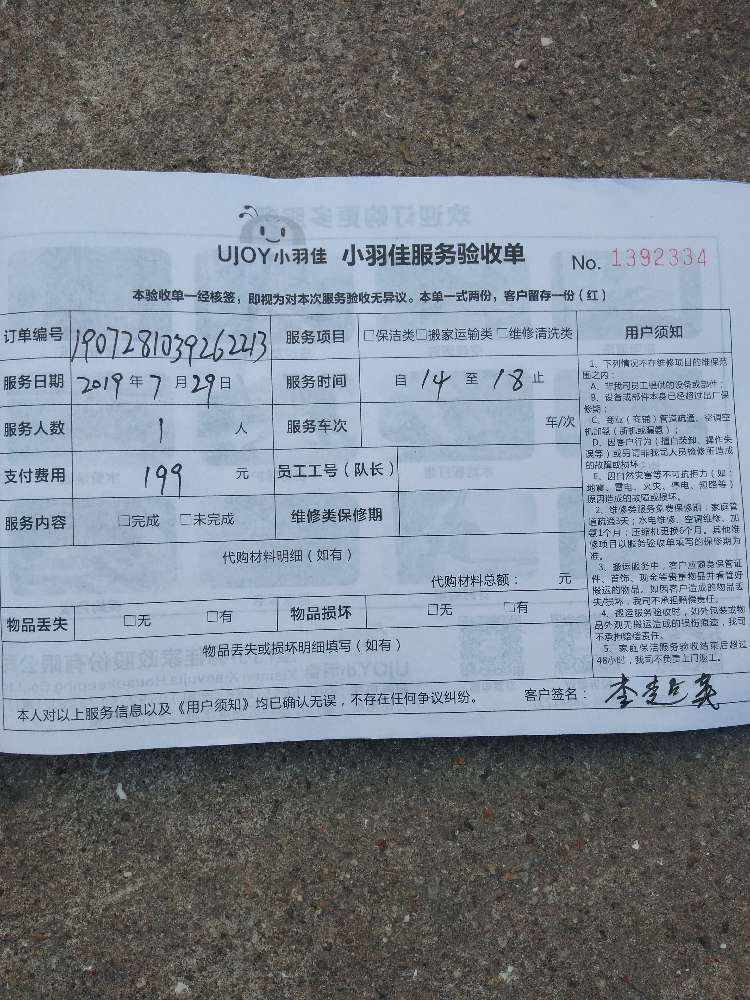 UJOY小羽佳 小羽佳服务验收单 No. 1392334
本验收单一经核签，即视为对本次服务验收无异议。本单一式两份，客户留存一份（红）
订单编号 1907281039262213 服务项目 □保洁类□搬家运输类□维修清洗类
服务日期 2019年7月29日 服务时间 自 14 至 18 止
服务人数 1 人 服务车次 车/次
支付费用 199 元 员工工号（队长）
服务内容 □完成 □未完成 维修类保修期
代购材料明细（如有）
代购材料总额： 元
物品丢失 □无 □有 物品损坏 □无 □有
物品丢失或损坏明细填写（如有）
本人对以上服务信息以及《用户须知》均已确认无误，不存在任何争议纠纷。 客户签名：李
用户须知
1、下列情况不在维修项目的维保范
围之内：
A、非我司员工提供的设备或部件；
B、设备或部件本身已经超过出厂保
修期；
C、商业（店铺）管道疏通、空调空
机加氨（新机或漏氨）；
D、因客户行为（擅自装卸、操作失
误等）或另请非我司人员检修所造成
的故障或损坏；
E、因自然灾害等不可抗拒力（如：
地震、雷电、火灾、停电、短路等）
原因造成的故障或损坏。
2、维修类服务免费保修期：家庭管
道疏通3天；水电维修、空调维修、加
氨1个月；压缩机更换6个月。其他维
修项目以服务验收单填写的保修期为
准。
3、搬运服务中，客户应随身保管证
件、首饰、现金等贵重物品并看管好
搬运的物品，如因客户造成的物品丢
失/损坏，我司不承担赔偿责任。
4、搬运服务验收时，如外包装或物
品外观无搬运造成的损伤痕迹，我司
不承担赔偿责任。
5、家庭保洁服务验收结束后超过
48小时，我司不负责上门返工。